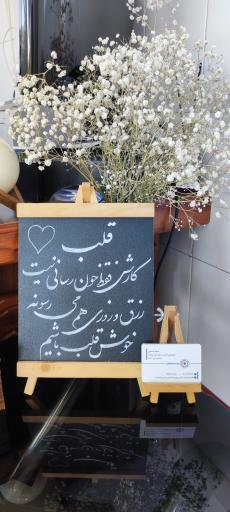 قلب
کارش فقط خون رسانی نیست
رزق و روزی هم می رسونه
خوش قلب باشیم